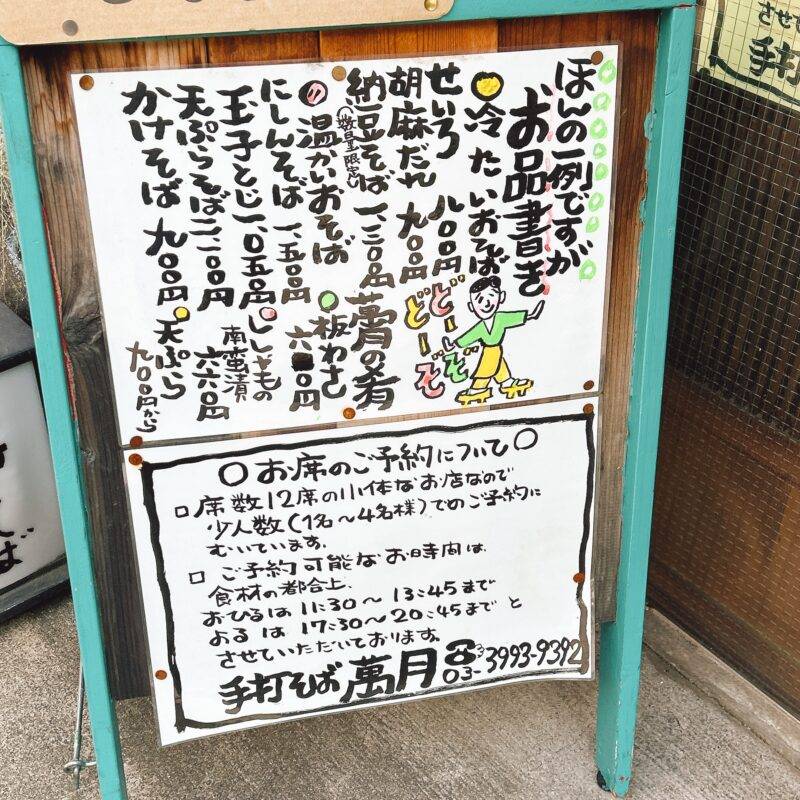 ほんの一例ですが
お品書き
冷たいおそば
せいろ 八〇〇円
胡麻だれ 九〇〇円
納豆そば 一、三〇〇円
(数量限定)
温かいおそば
にしんそば 一、五〇〇円
玉子とじ 一、〇五〇円
天ぷらそば 二、一〇〇円
かけそば 九〇〇円
どーぞ
どーぞ
蕎の肴
板わさ
ししゃもの
南蛮漬
六六〇円
天ぷら
九〇〇円から
○お席のご予約について○
□席数12席の小体なお店なので
少人数(1名〜4名様)でのご予約に
むいています。
□ご予約可能なお時間は、
食材の都合上、
おひるは11:30〜13:45まで
よるは17:30〜20:45までと
させていただいております。
手打そば 萬月 ☎03-3993-9392
させて
手打